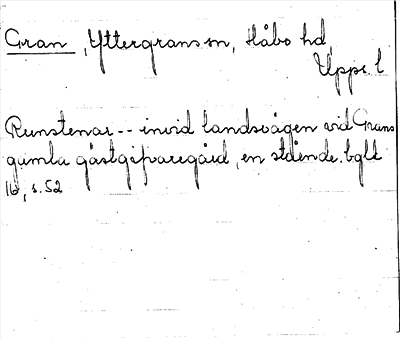 Gran, Yttergrans sn, Håbo hd,
Upps. l
Runstenar -- invid landsvägen vid Grans
gamla gästgifvaregård, en stående. bgld
16, s. 52